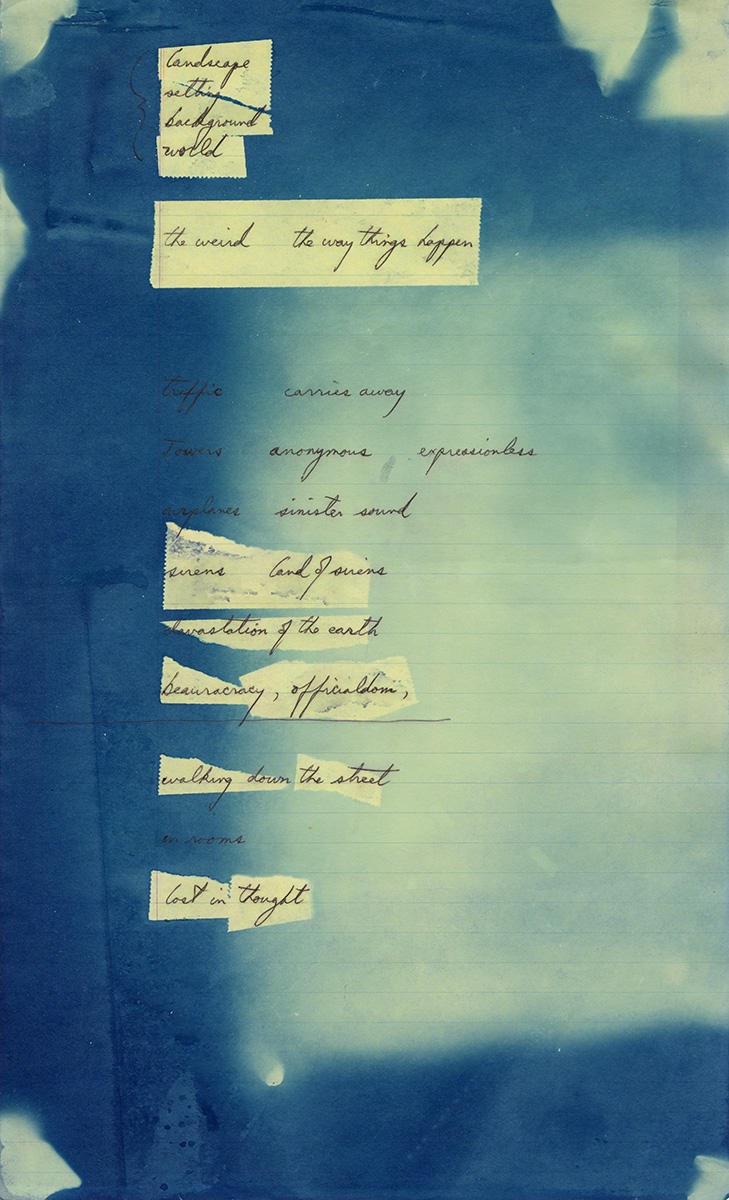 landscape
setting
background
world
the weird the way things happen
traffic carries away
Towers anonymous expressionless
airplanes sinister sound
sirens land of sirens
devastation of the earth
beauracracy, officialdom,
walking down the street
in rooms
lost in thought